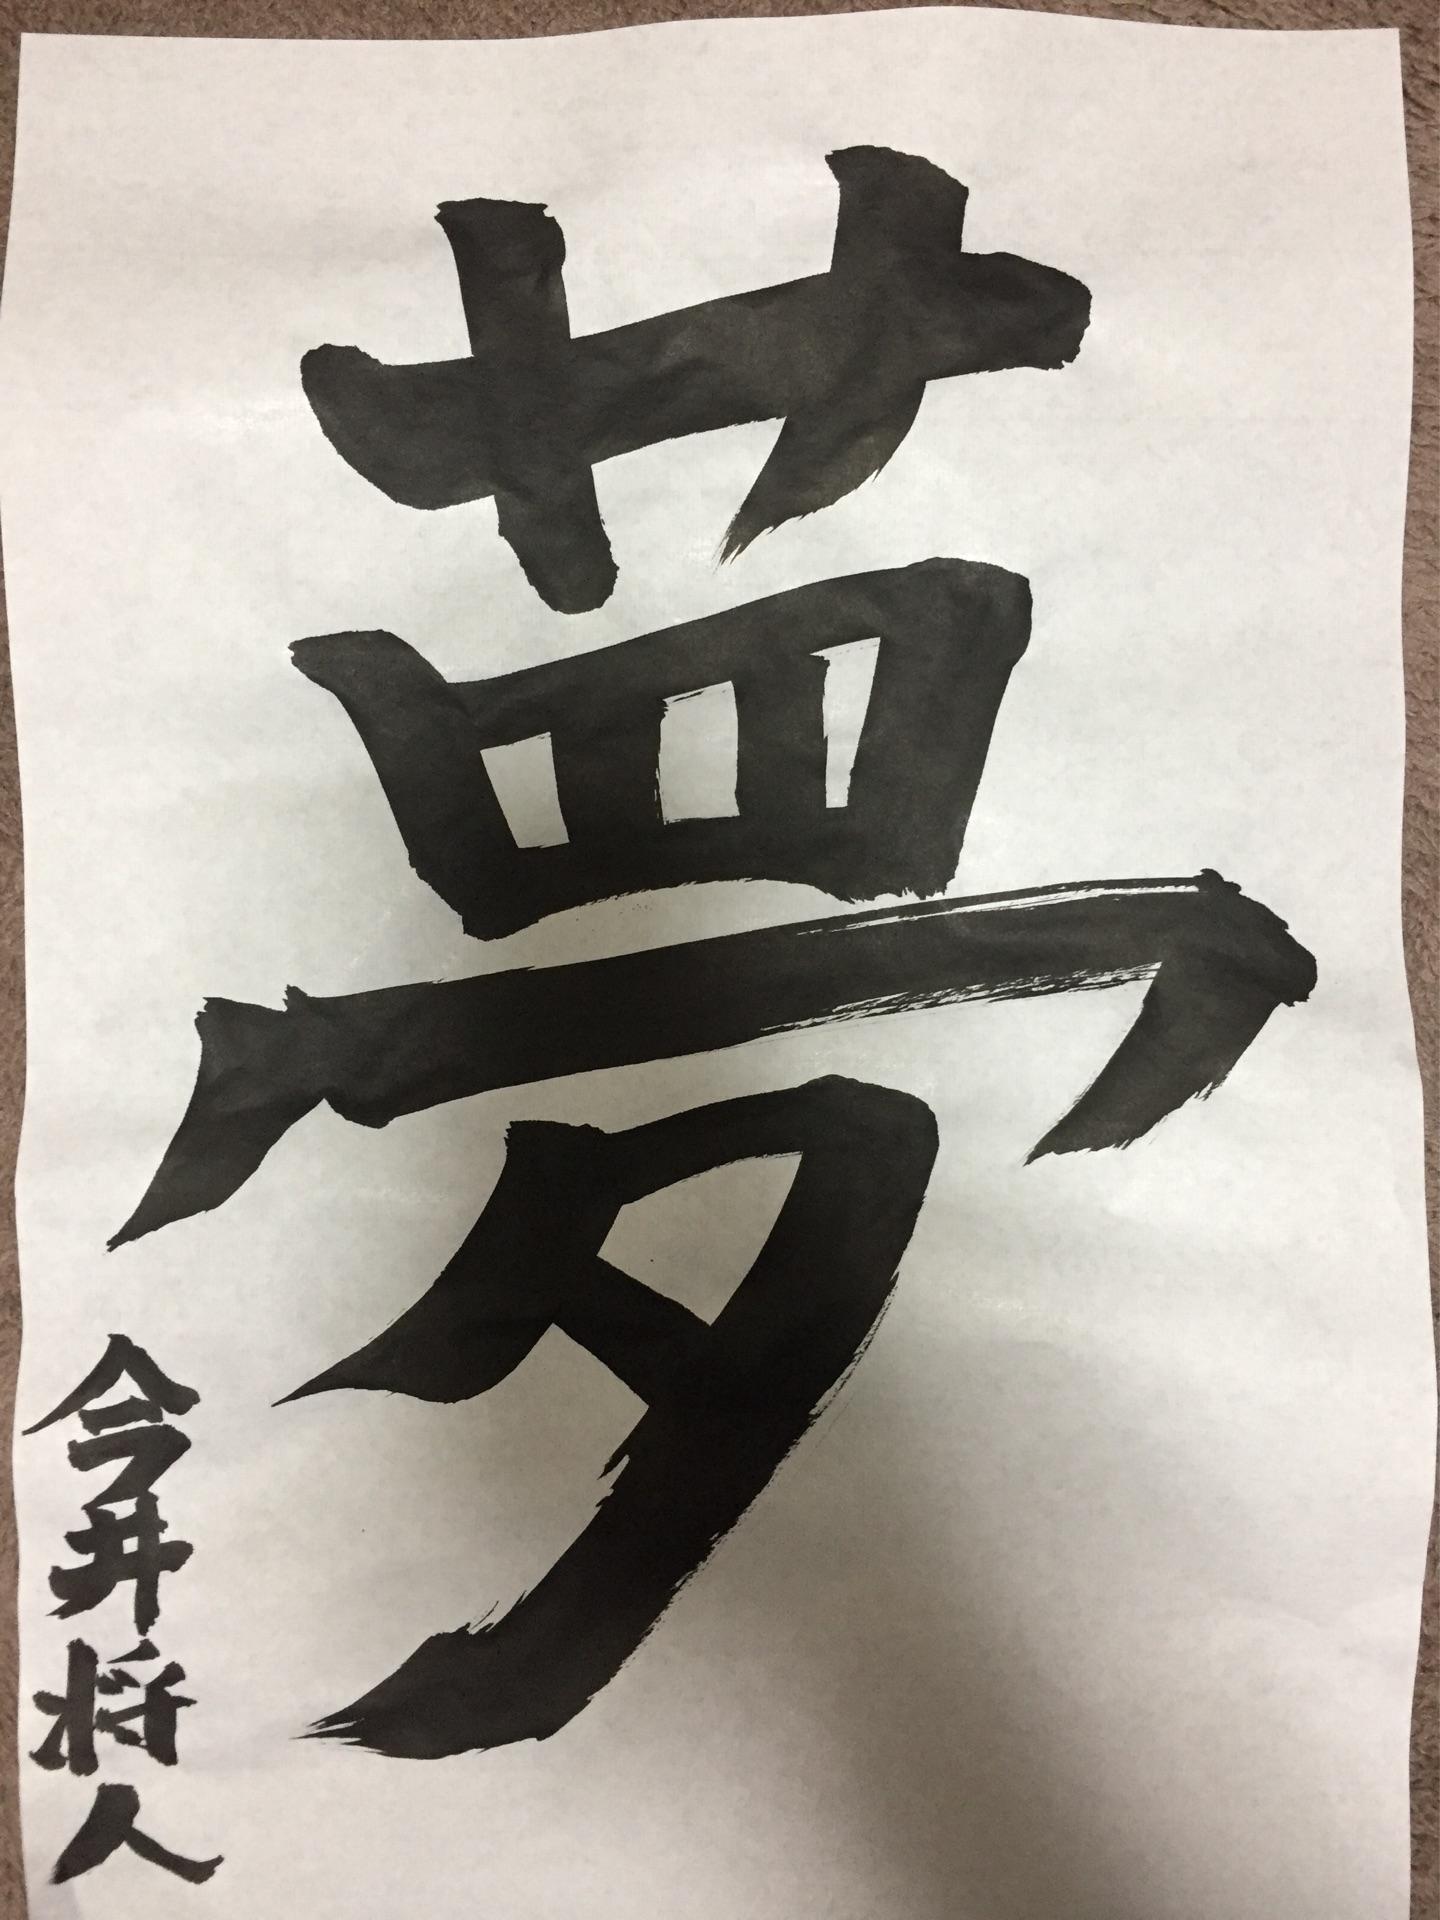 夢
今井将人